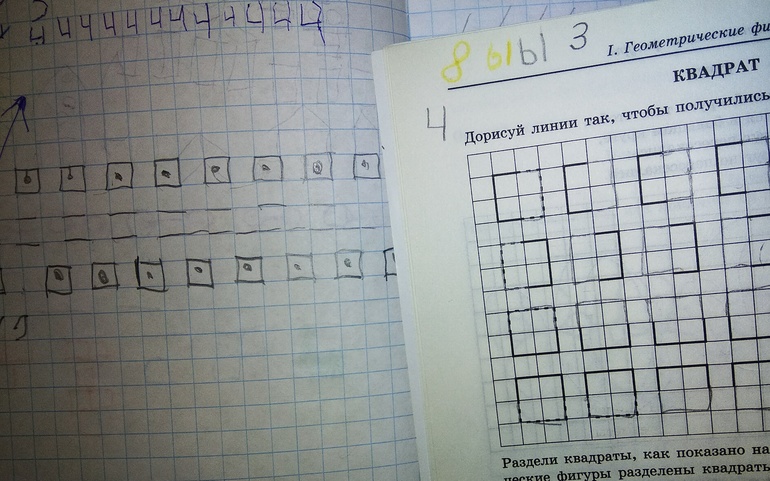 4 4 4 4 4 4 4 4 4 4 4 4 4
8 ы ы 3
I. Геометрические фи
КВАДРАТ
4
Дорисуй линии так, чтобы получились
Раздели квадраты, как показано на
ческие фигуры разделены квадраты